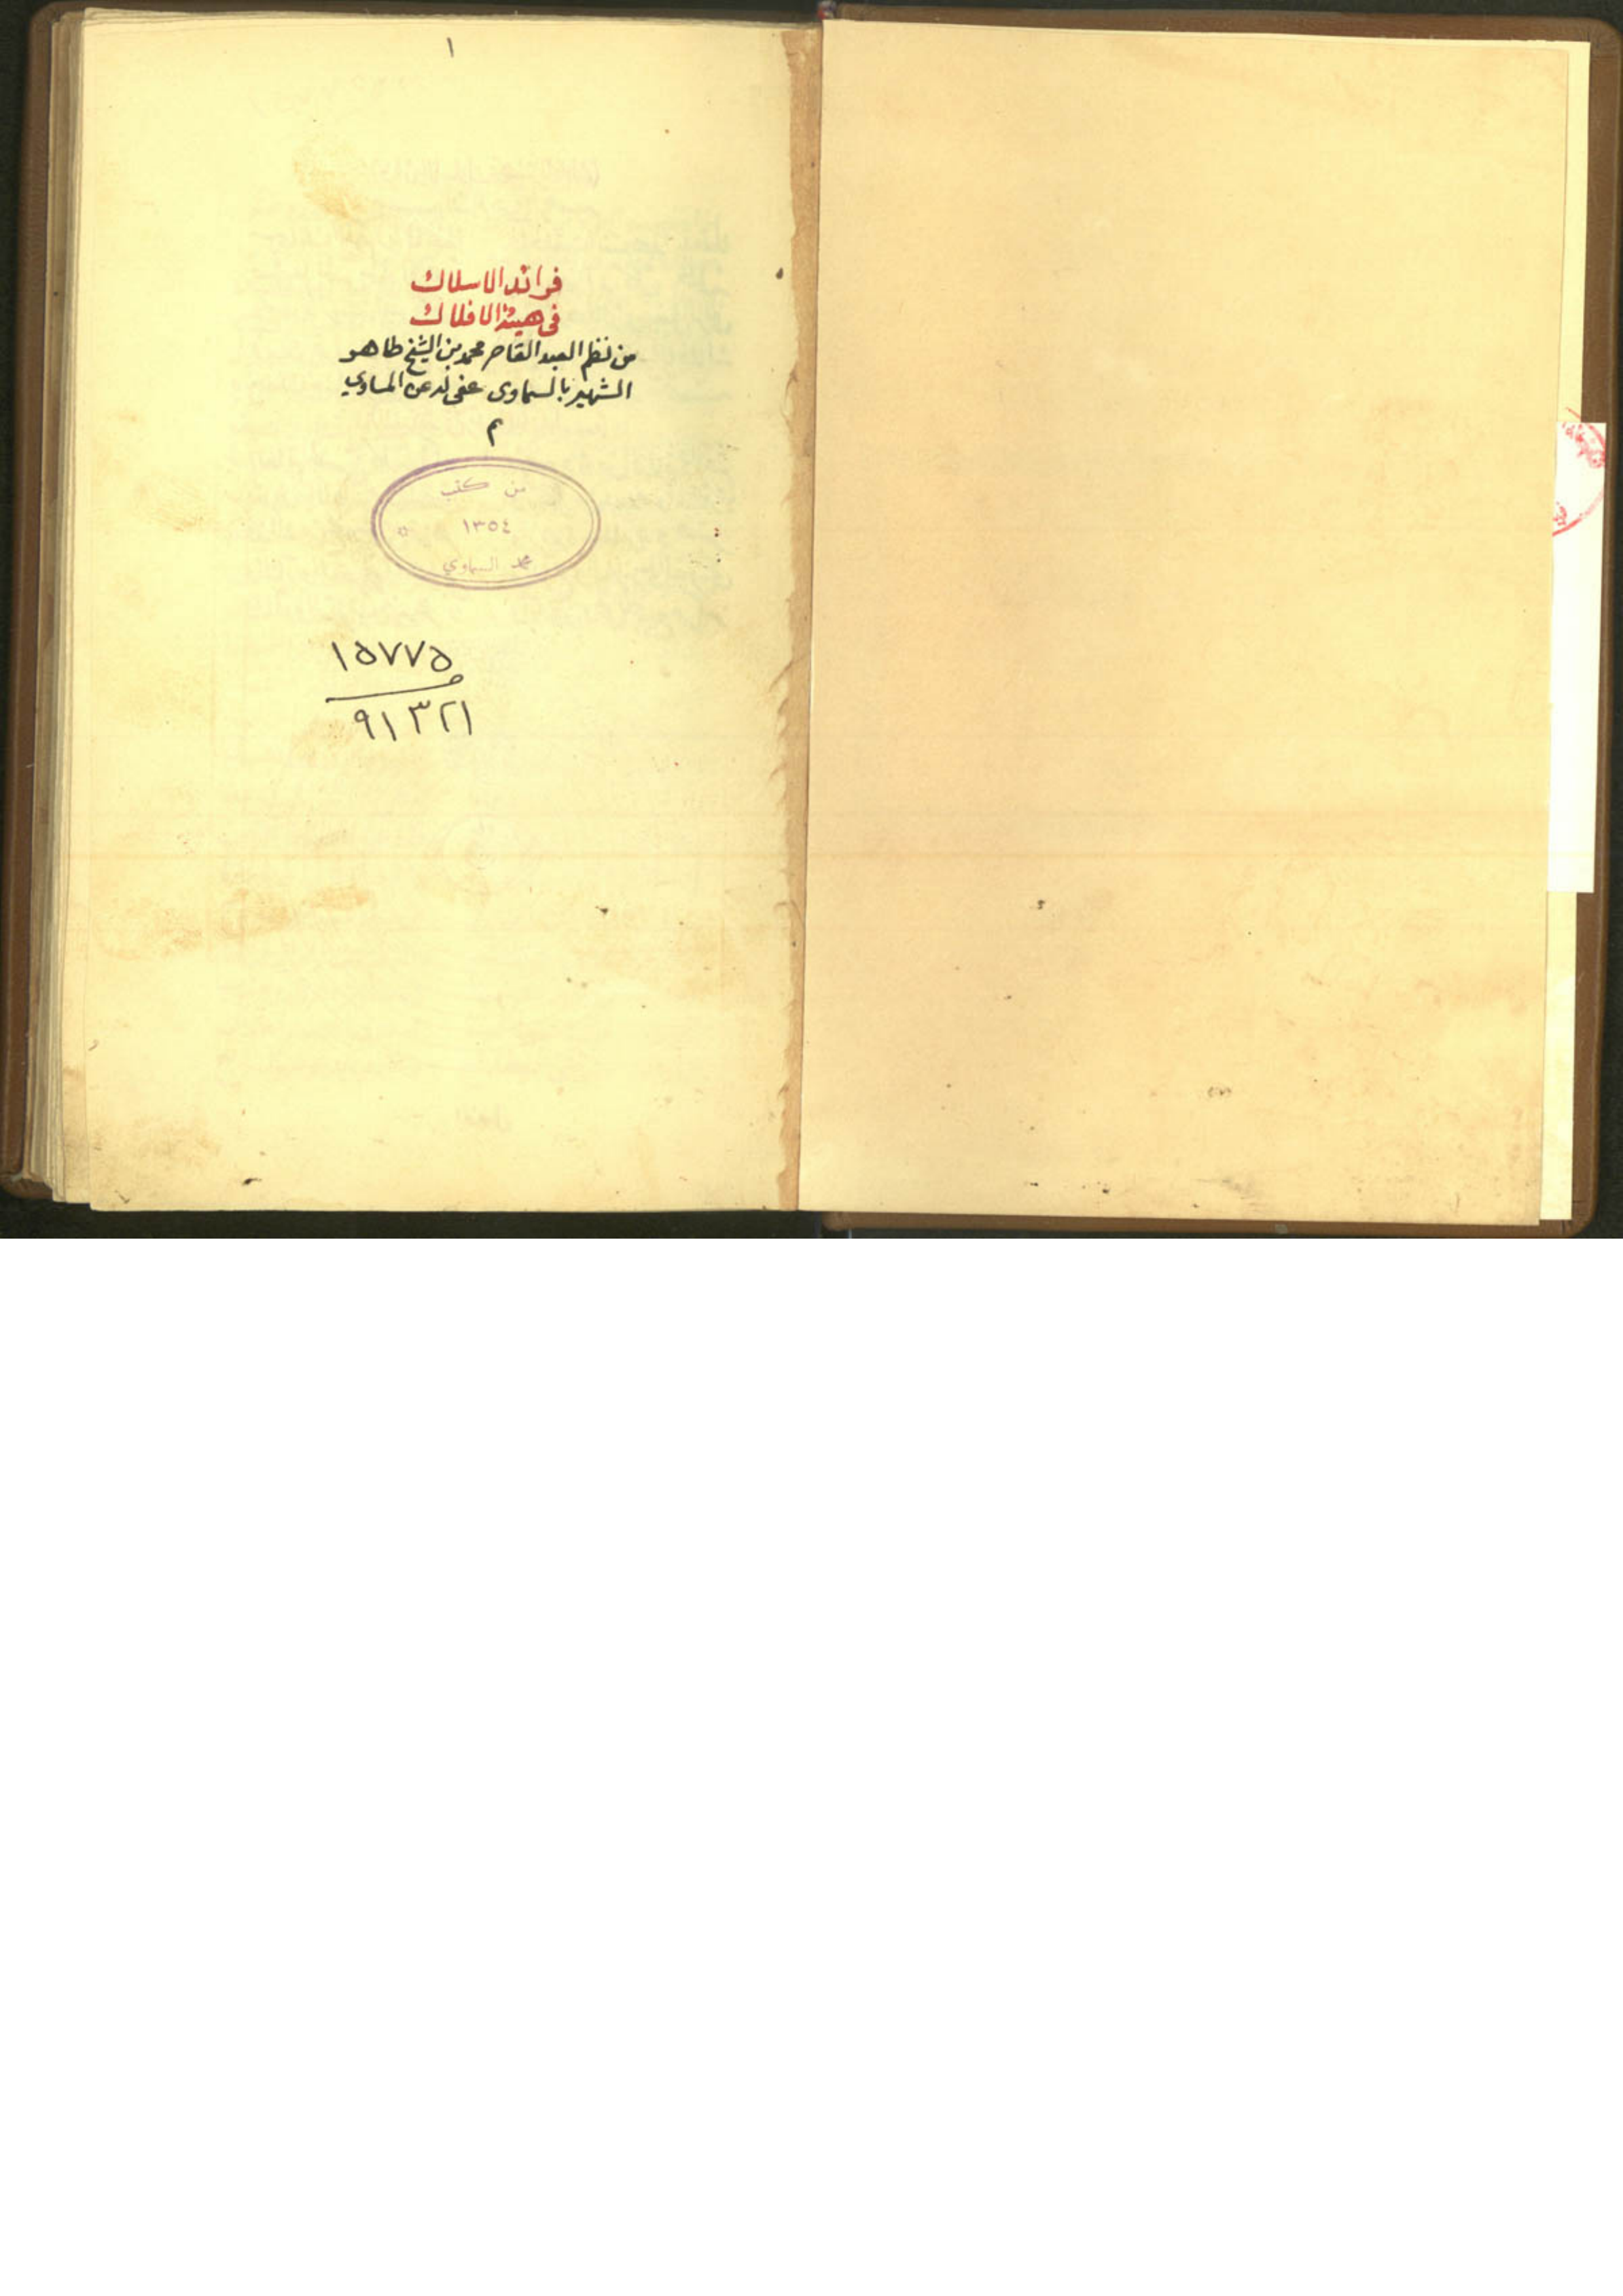 ١
فرائد الاسلاك
فى هيئة الافلاك
من نظم العبد القاصر محمد بن الشيخ طاهر
الشهير بالسماوى عفى له عن المساوي
م
من كتب
١٣٥٤
محمد السماوي
١٥٧٧٥
٩١٣٢١